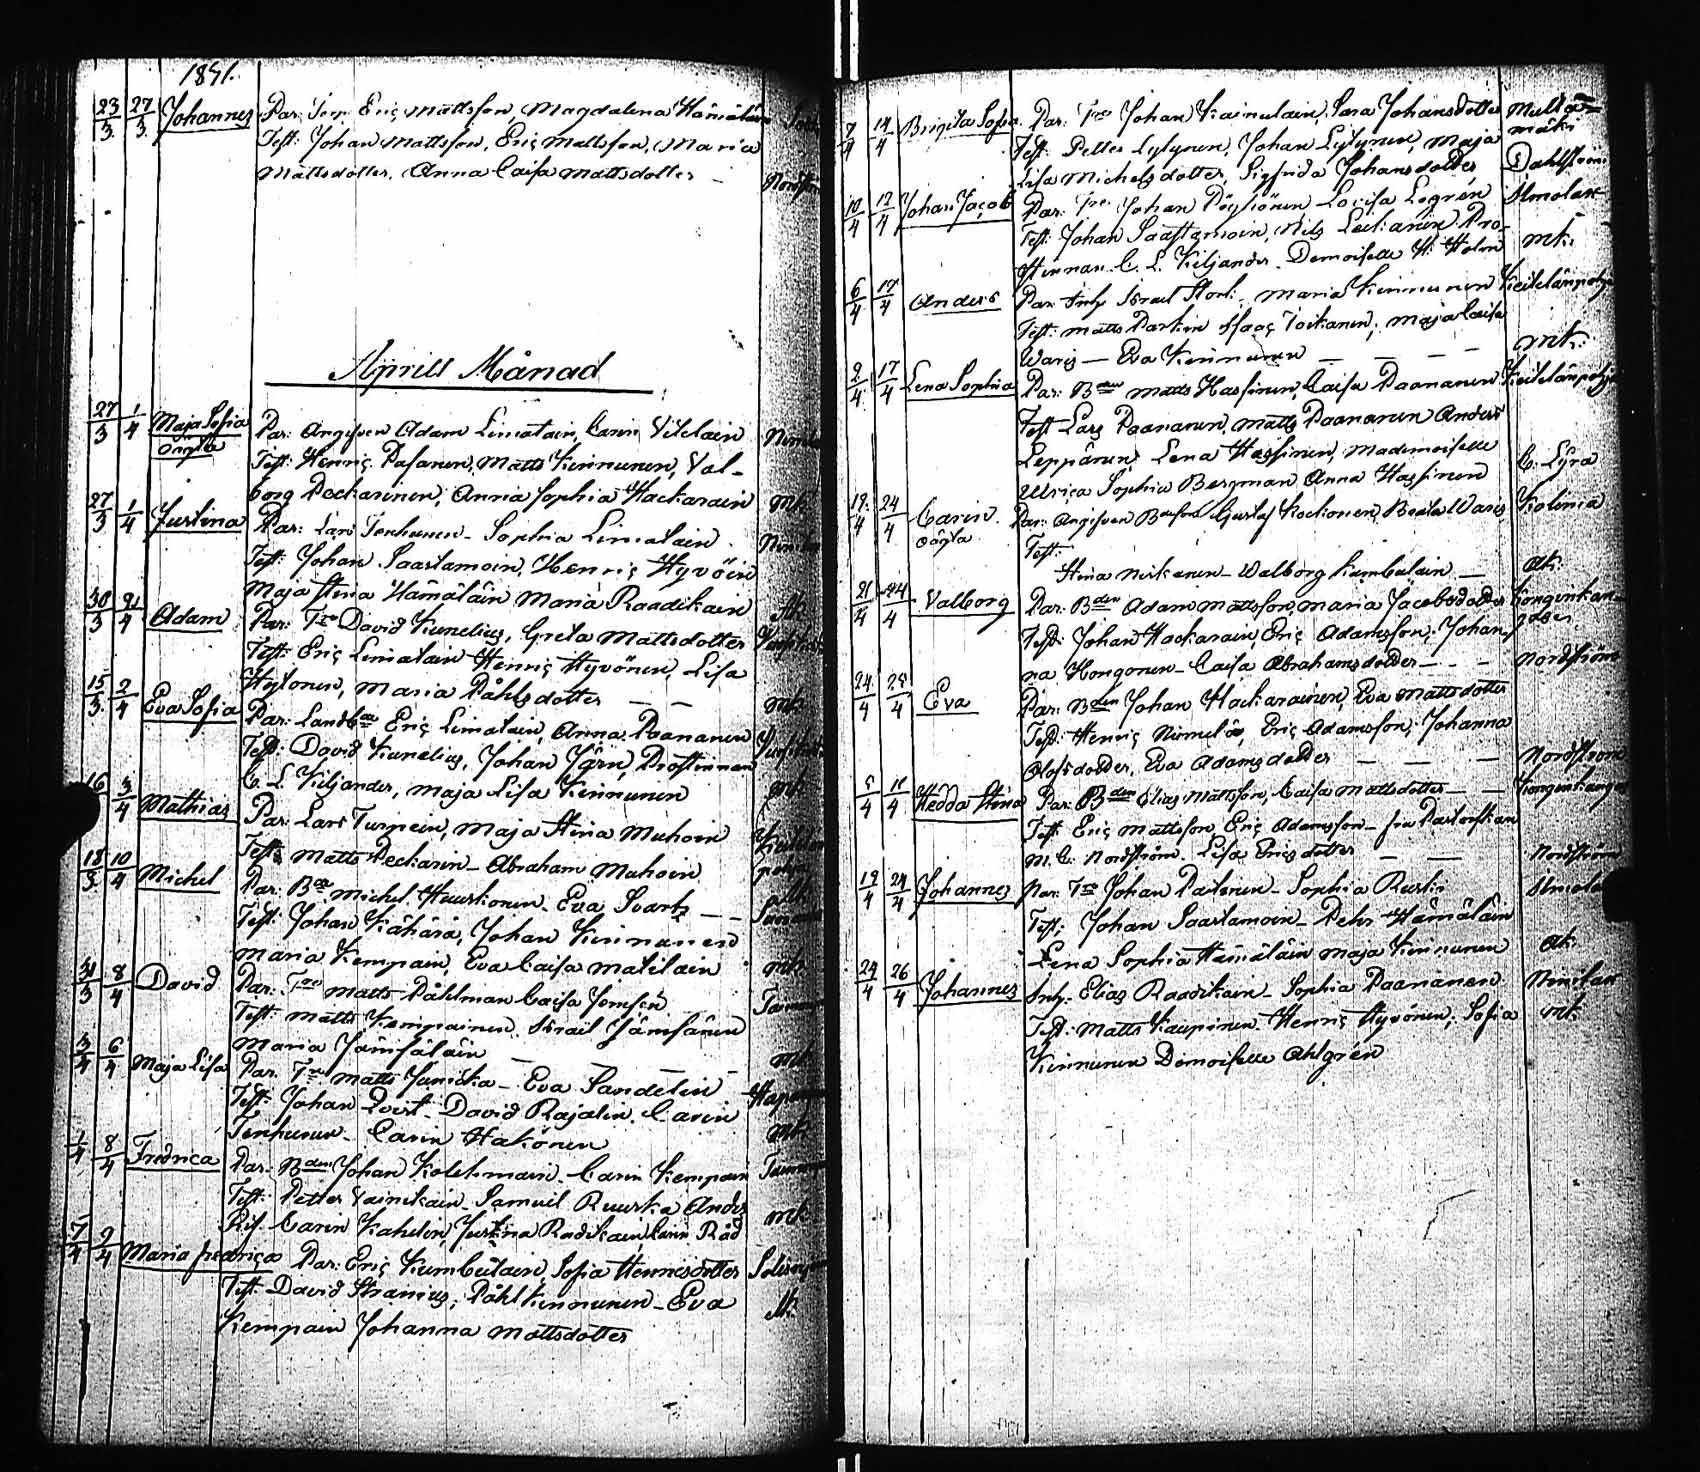 1841.
23/3 27/3 Johannes Par: Eric Mattsson, Magdalena Hämäläin
Test: Johan Mattsson, Eric Mattsson, Maria
Mattsdotter, Anna Caisa Mattsdotter – Nordström
Aprill Månad
27/3 1/4 Maja Sofia Par: Angifven Adam Limatain, Carin Vitelain
oägta Test: Henric Pasanen, Matts Kinnunen, Val-
borg Peckarinen, Anna Sophia Hackarain mk.
27/3 1/4 Justina Par: Lars Tenhunen – Sophia Limatain
Test: Johan Saastamoin, Henric Hyvöin
Maja Stina Hämäläin Maria Raadikain
30/3 2/4 Adam Par: David Kunelius, Greta Mattsdotter
Test: Eric Limatain Henric Hyvönen, Lisa
Hytonen, Maria Påhlsdotter mk.
15/3 2/4 Eva Sofia Par: Landb. Eric Limatain, Anna Paananen
Test: David Kunelius, Johan Jern, Prostinnan
C. L. Kiljander, Maja Lisa Kinnunen mk.
16 3/4 Mathias Par: Lars Turpein, Maja Stina Muhoin
Test: Matts Peckarin – Abraham Muhoin
18/3 10/4 Michel Par: Michel Huuskonen – Eva Svartz
Test: Johan Kähärä, Johan Kinnunen
Maria Kempain, Eva Caisa Matilain mk.
31/3 8/4 David Par: Matts Påhlman Caisa
Test: Matts Kempainen, Israil Jämsänen
Maria Jämsäläin mk.
3/4 6/4 Maja Lisa Par: Matts Junicka – Eva Sandelin
Test: Johan Qvist – David Rajalin, Carin
Tenhunen – Carin Hakönen mk.
1/4 8/4 Fredrica Par: Bden Johan Kolehmain – Carin Kempain
Test: Petter Vainikain – Samuel Ruuska Anders
Carin Kahelin, Justina Radikain, Carin Råd mk.
7/4 9/4 Maria Fredrica Par: Eric Kumbulain, Sofia Henricsdotter
Test: David Stranius, Påhl Kinnunen – Eva
Kempain Johanna Mattsdotter
7/4 14/4 Brigita Sofia Par: Johan Kainulain, Sara Johansdotter Multa-
Test: Petter Lylynen, Johan Lylynen, Maja mäki
Lisa Michelsdotter, Sigfrida Johansdotter Dahlström
10/4 12/4 Johan Jacob Par: Johan Pöyhönen – Lovisa Logrén
Test: Johan Saastamoin, Nils Leskanen Pro-
stinnan C. L. Kiljander. Demoiselle H. Holm mk.
6/4 17/4 Anders Par: Inhy. Israel Stork – Maria Kinnunen Keitelänpohja
Test: Matts Partin Isaac Toikanen, Maja Caisa
Waris – Eva Kinnunen – – – mk.
9/4 17/4 Lena Sophia Par: Bden Matts Hassinen, Caisa Paananen Keitelänpohja
Test Lars Paananen, Matts Paananen Anders
Leppänen, Lena Hassinen, Mademoiselle
Ulrica Sophia Bergman Anna Hassinen C. Lyra
19/4 24/4 Carin Par: Angifven Gustaf Kockonen, Beata Waris Kolima
oägta Test:
Stina Niskanen – Walborg Kumbulain – ak.
21/4 24/4 Valborg Par: Bden Adam Mattsson, Maria Jacobsdotter Konginkan-
Test: Johan Hackarain, Eric Adamsson, Johan-
na Hongonen – Caisa Abrahamsdotter – – – Nordström
24/4 25/4 Eva Par: Bden Johan Hackarainen, Eva Mattsdotter
Test: Henric Niemelä, Eric Adamsson, Johanna
Olofsdotter, Eva Adamsdotter – – – Nordström
5/4 11/4 Hedda Stina Par: Bden Elias Mattsson, Caisa Mattsdotter – – Konginkangas
Test: Eric Mattsson, Eric Adamsson – fru Pastorskan
M. C. Nordström. Lisa Ericsdotter – – Nordström
19/4 24/4 Johannes Par: Johan Paitonen – Sophia Ruski
Test: Johan Saastamoin – Pehr Hämäläin
Lena Sophia Hämäläin Maja Kinnunen ak.
24/4 26/4 Johannes Inhy. Elias Raadikain – Sophia Paananen
Test: Matts Kaupinen Henric Hyvönen, Sofia mk.
Kinnunen Demoiselle Ahlgrén